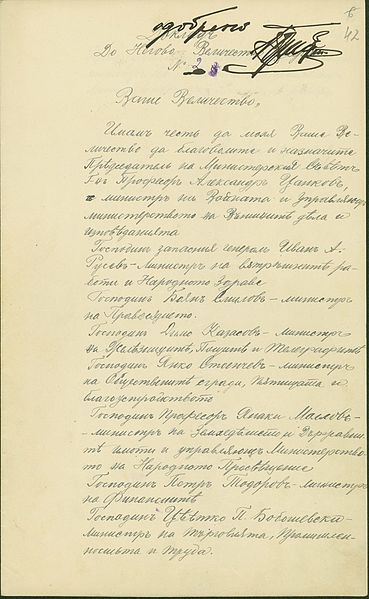 одобрено
Докладъ
6
42
До Негово Величество
№ 2
Ваше Величество,
Имамъ честь да моля Ваше Ве-
личество да благоволите и назначите
Председатель на Министерския Съветъ
Г-нъ Професоръ Александръ Цанковъ,
и министръ на Войната и управляющъ
министерството на Външнитѣ дела и
изповѣданията
Господинъ запасния генералъ Иванъ А.
Русевъ - Министръ на вѫтрѣшнитѣ ра-
боти и Народното Здраве
Господинъ Боянъ Смиловъ - министръ
на Правосѫдието.
Господинъ Димо Казасовъ - Министръ
на Желѣзницитѣ, Пощитѣ и Телеграфитѣ
Господинъ Янко Стоенчевъ - министръ
на Обществените сгради, пѫтищата и
благоустройството
Господинъ Професоръ Янаки Моловъ -
- министръ на Земледѣлието и Държавни-
тѣ имоти и управляющъ Министерство-
то на Народното Просвѣщение
Господинъ Петръ Тодоровъ - министръ
на Финанситѣ
Господинъ Цвѣтко П. Бобошевски -
министръ на търговията, Промишле-
ностьта и труда.